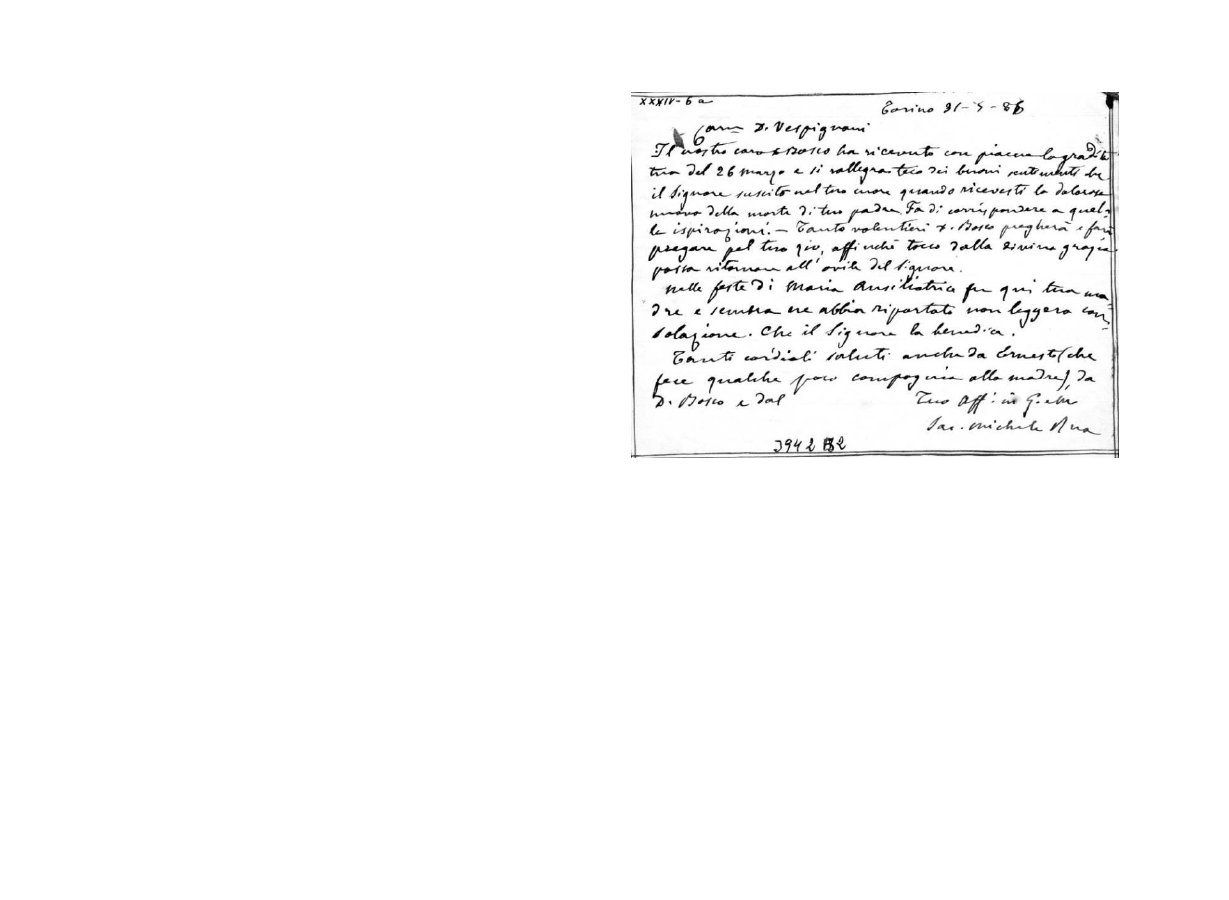 XXXIV-6 a
Torino 31-5-86
Caro D. Vespignani
Il nostro caro D. Bosco ha ricevuto con piacere la gradi
tua del 26 marzo e si rallegra teco dei buoni sentimenti che
il Signore suscitò nel tuo cuore quando ricevesti la dolorosa
nuova della morte di tuo padre. Fa di corrispondere a quel-
le ispirazioni. – Tanto volentieri D. Bosco pregherà e farà
pregare pel tuo zio, affinché tocco dalla divina grazia
possa ritornare all'ovile del Signore.
Nelle feste di Maria Ausiliatrice fu qui tua ma-
dre e sembra ne abbia riportato non leggera con-
solazione. Che il Signore la benedica.
Tanti cordiali saluti anche da Ernesto (che
fece qualche poco compagnia alla madre), da
D. Bosco e dal
Tuo Aff. in G. e M.
Sac. Michele Rua
3942 B2